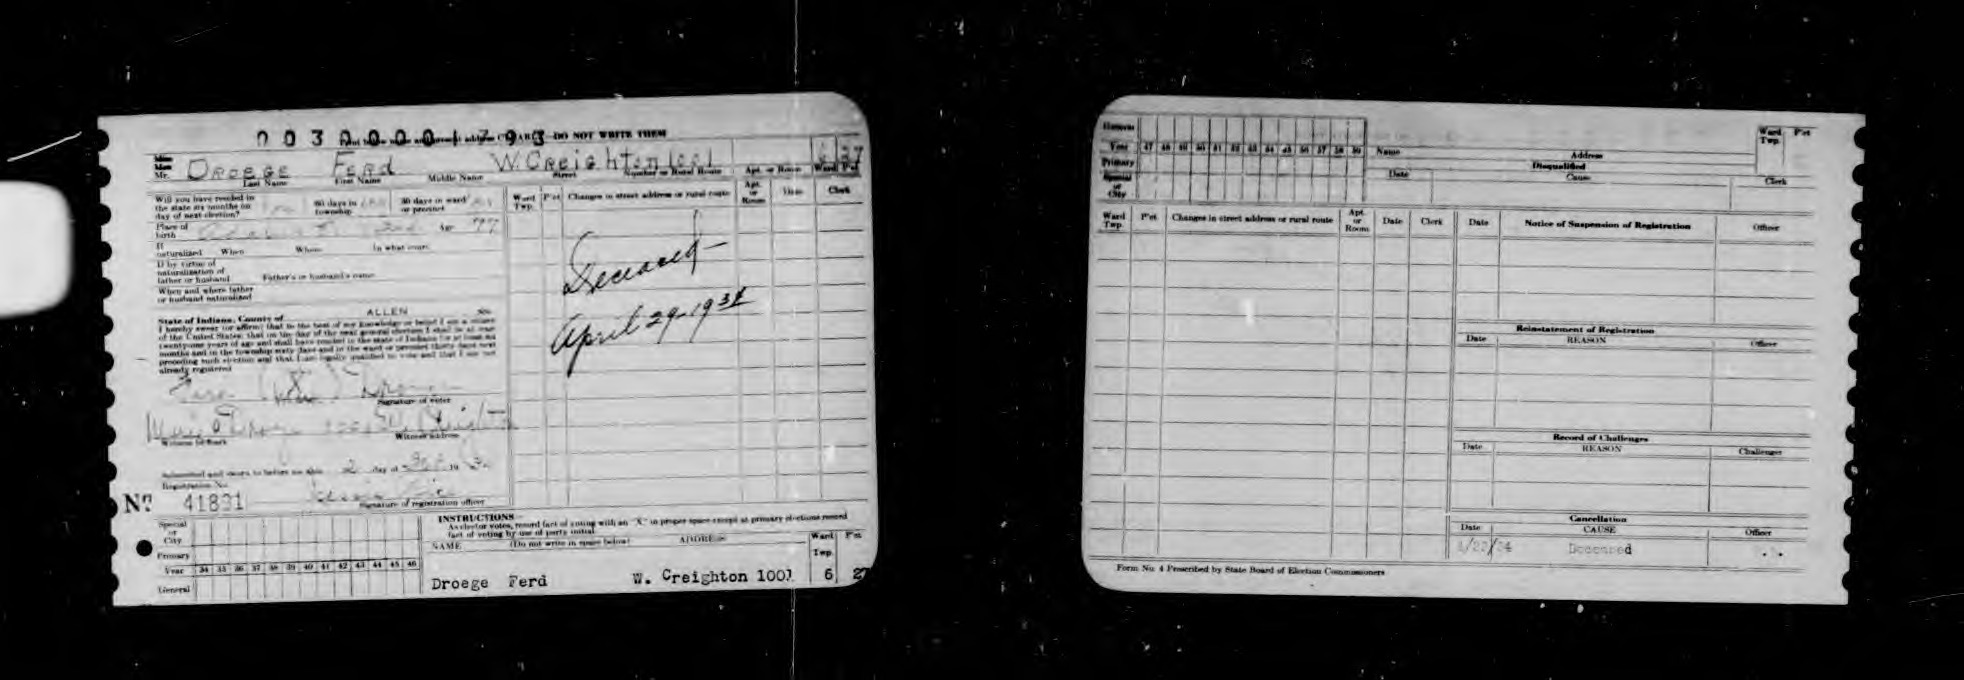 0030000 1793
DO NOT WRITE THEM
Miss
Mrs.
Mr. DROEGE FERD W. CREIGHTON 1001 6 27
Last Name First Name Middle Name Street Number or Rural Route Apt. or Room Ward P'ct
Will you have resided in
the state six months on
day of next election? 60 days in
township 30 days in ward
or precinct
Place of
birth Ind Age 77
If
naturalized When Where In what court
If by virtue of
naturalization of
father or husband Father's or husband's name
When and where father
or husband naturalized
State of Indiana, County of ALLEN ss:
I hereby swear (or affirm) that to the best of my knowledge or belief I am a citizen
of the United States; that on the day of the next general election I shall be at least
twenty-one years of age and shall have resided in the state of Indiana for at least six
months and in the township sixty days and in the ward or precinct thirty days next
preceding such election and that I am legally qualified to vote and that I am not
already registered
Ferd (X) Droege
Signature of voter
Witness to mark Witness address
Subscribed and sworn to before me this 2 day of 19
Registration No.
Nº 41831
Signature of registration officer
Ward
Twp. P'ct Changes in street address or rural route Apt.
or
Room Date Clerk
Deceased
April 29-1934
Special
or
City
Primary
Year 34 35 36 37 38 39 40 41 42 43 44 45 46
General
INSTRUCTIONS
As elector votes, record fact of voting with an "X" in proper space except at primary elections record
fact of voting by use of party initial
NAME (Do not write in space below) ADDRESS Ward
Twp. P'ct
Droege Ferd W. Creighton 1001 6 27
General
Year 47 48 49 50 51 52 53 54 55 56 57 58 59
Primary
Special
or
City
Name Address Ward
Twp. P'ct
Disqualified
Date Cause Clerk
Ward
Twp. P'ct Changes in street address or rural route Apt.
or
Room Date Clerk
Date Notice of Suspension of Registration Officer
Reinstatement of Registration
Date REASON Officer
Record of Challenges
Date REASON Challenger
Cancellation
Date CAUSE Officer
Deceased
Form No. 4 Prescribed by State Board of Election Commissioners